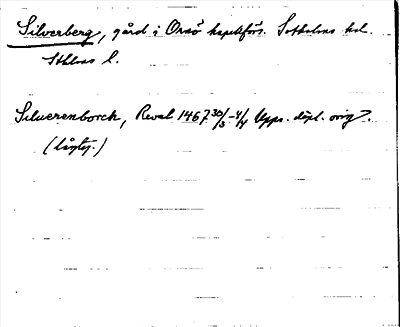 Silverberg, gård i Ornö kapellförs. Sotholms hd.
Sthlms l.
Siluerenborch, Reval 1467 30/3-4/4 Upps. dipl. orig.
(lågty.)